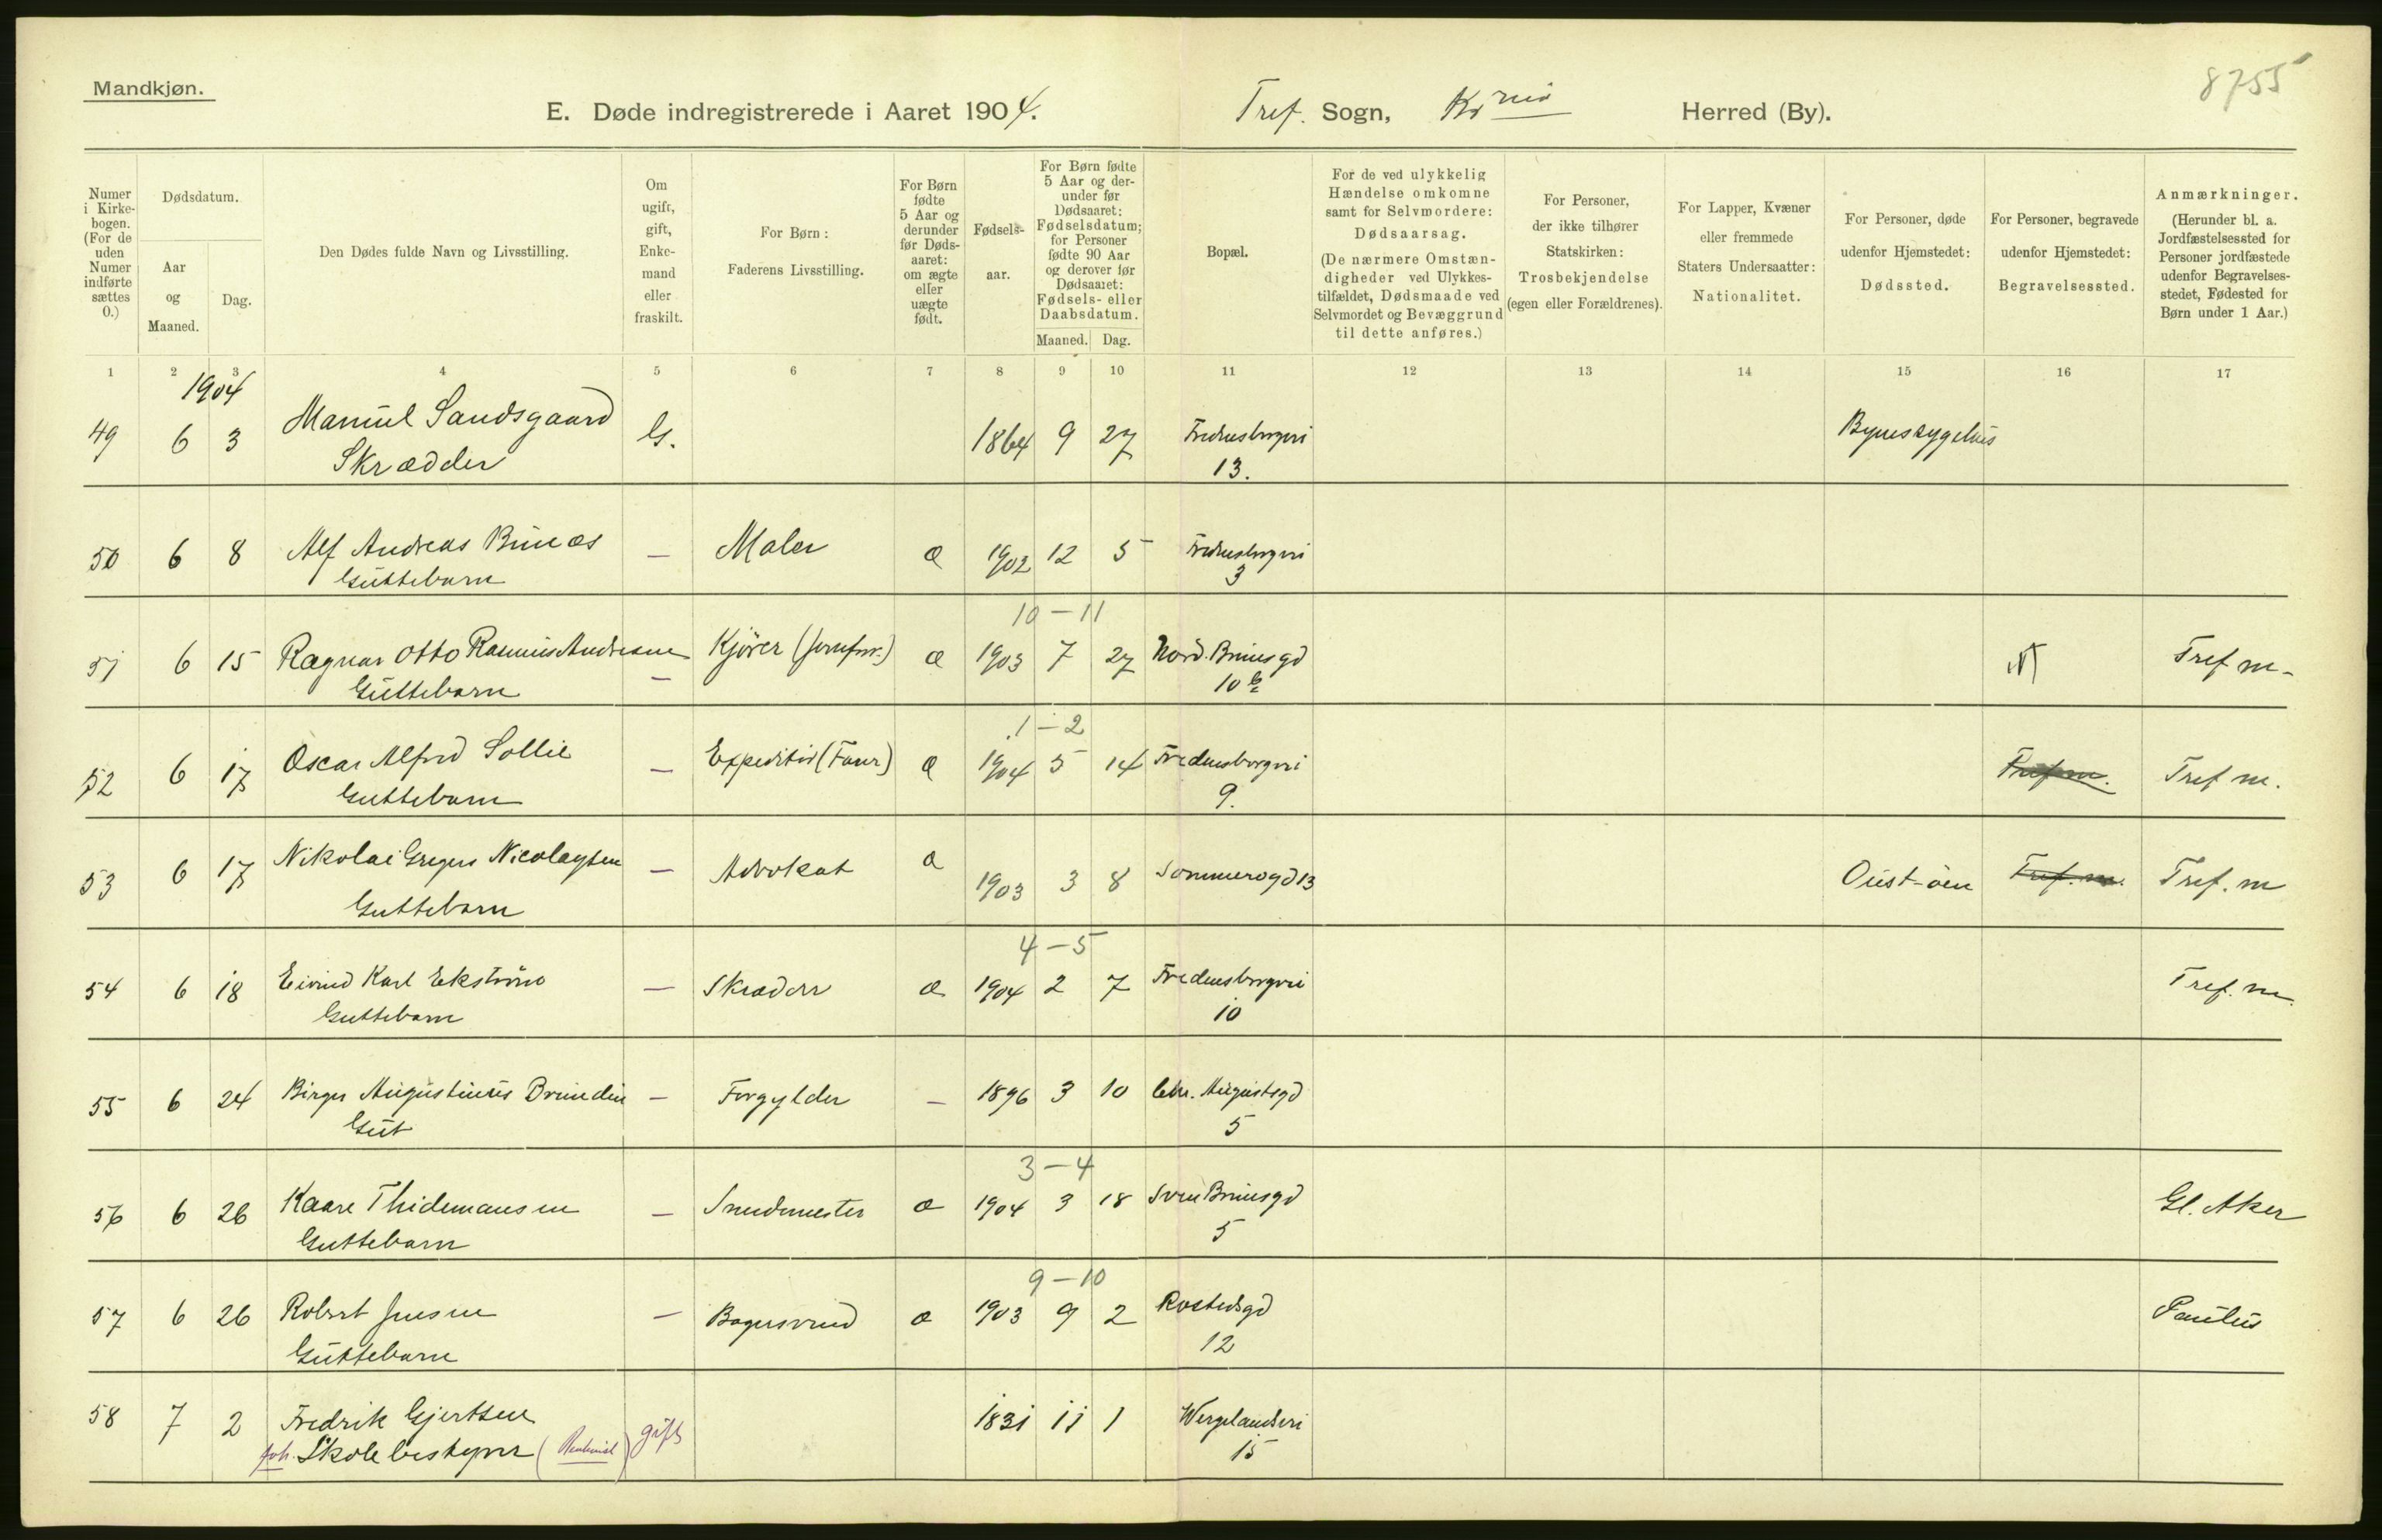 Mandkjøn.
8755
E. Døde indregistrerede i Aaret 1904.
Tref. Sogn, Kr nia Herred (By).
Numer i Kirke-bogen. (For de uden Numer indførte sættes 0.)
Dødsdatum.
Aar og Maaned.
Dag.
Den Dødes fulde Navn og Livsstilling.
Om ugift, gift, Enke-mand eller fraskilt.
For Børn: Faderens Livsstilling.
For Børn fødte 5 Aar og derunder før Døds-aaret: om ægte eller uægte født.
Fødsels-aar.
For Børn fødte 5 Aar og der-under før Dødsaaret: Fødselsdatum; for Personer fødte 90 Aar og derover før Dødsaaret: Fødsels- eller Daabsdatum.
Maaned. Dag.
Bopæl.
For de ved ulykkelig Hændelse omkomne samt for Selvmordere: Dødsaarsag. (De nærmere Omstæn-digheder ved Ulykkes-tilfældet, Dødsmaade ved Selvmordet og Bevæggrund til dette anføres.)
For Personer, der ikke tilhører Statskirken: Trosbekjendelse (egen eller Forældrenes).
For Lapper, Kvæner eller fremmede Staters Undersaatter: Nationalitet.
For Personer, døde udenfor Hjemstedet: Dødssted.
For Personer, begravede udenfor Hjemstedet: Begravelsessted.
Anmærkninger. (Herunder bl. a. Jordfæstelsessted for Personer jordfæstede udenfor Begravelses-stedet, Fødested for Børn under 1 Aar.)
1 2 3 4 5 6 7 8 9 10 11 12 13 14 15 16 17
1904
49 6 3 Manuel Sandsgaard G. 1864 9 27 Fredensborgvei Byens sygehus
Skrædder 13.
50 6 8 Alf Andreas Bruaas — Maler æ 1902 12 5 Fredensborgvei
Guttebarn 3
10 — 11
51 6 15 Ragnar Otto Rasmus Andresen — Kjører 1903 7 27 Nord. Brunsgd Tref m.
Guttebarn 10 b
1 — 2
52 6 17 Oscar Alfred Sollie — Expeditør æ 1904 5 14 Fredensborgvei Tref m. Tref m.
Guttebarn 9.
53 6 17 Nikolai Gregers Nicolaysen — Advokat æ 1903 3 8 Sommerogd 13 Oust-øen Tref. m. Tref. m
Guttebarn
4 — 5
54 6 18 Eivind Karl Ekstrøm — Skrædder æ 1904 2 7 Fredensborgvei Tref. m.
Guttebarn 10
55 6 24 Birger Augustinus Brundin — Forgylder — 1896 3 10 Chr. Augustsgd
Gut 5
3 — 4
56 6 26 Kaare Thidemansen — Smedmester æ 1904 3 18 Sven Brunsgd Gl. Aker
Guttebarn 5
9 — 10
57 6 26 Robert Jensen — Bagersvend æ 1903 9 2 Rostedsgd Paulus
Guttebarn 12
58 7 2 Fredrik Gjertsen gift 1831 11 1 Wergelandsvei
Skolebestyrer 15